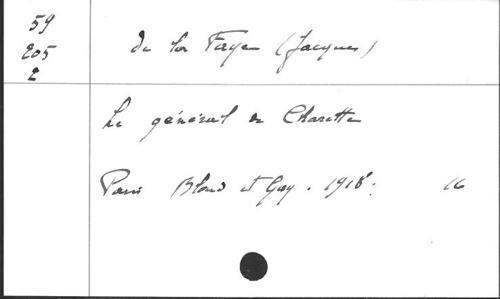 59
205
2
de la Faye (Jacques)
Le général de Charette
Paris Bloud et Gay. 1918. 16